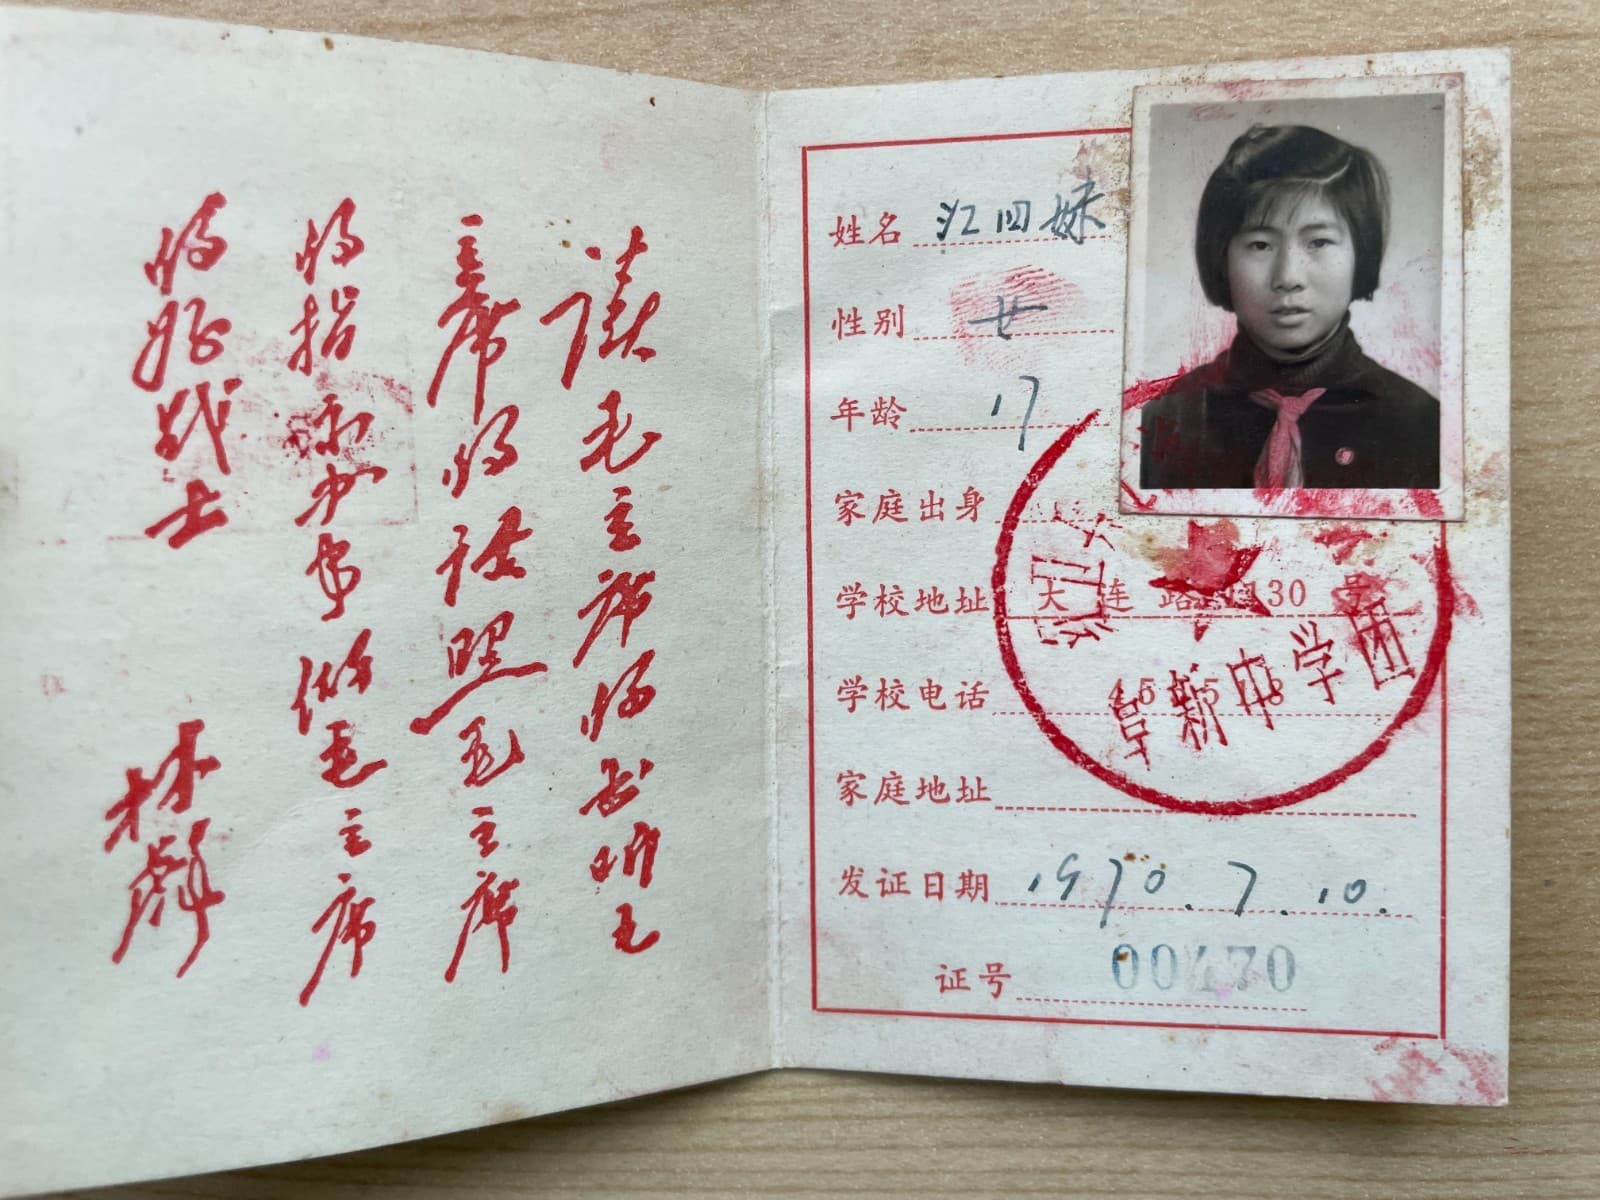 读毛主席的书听毛
主席的话照毛主席
的指示办事做毛主席
的好战士
林彪
姓名 江四妹
性别 女
年龄 17
家庭出身
学校地址 大连路 号
学校电话
家庭地址
发证日期 1970.7.10.
证号 00470
阜新中学团